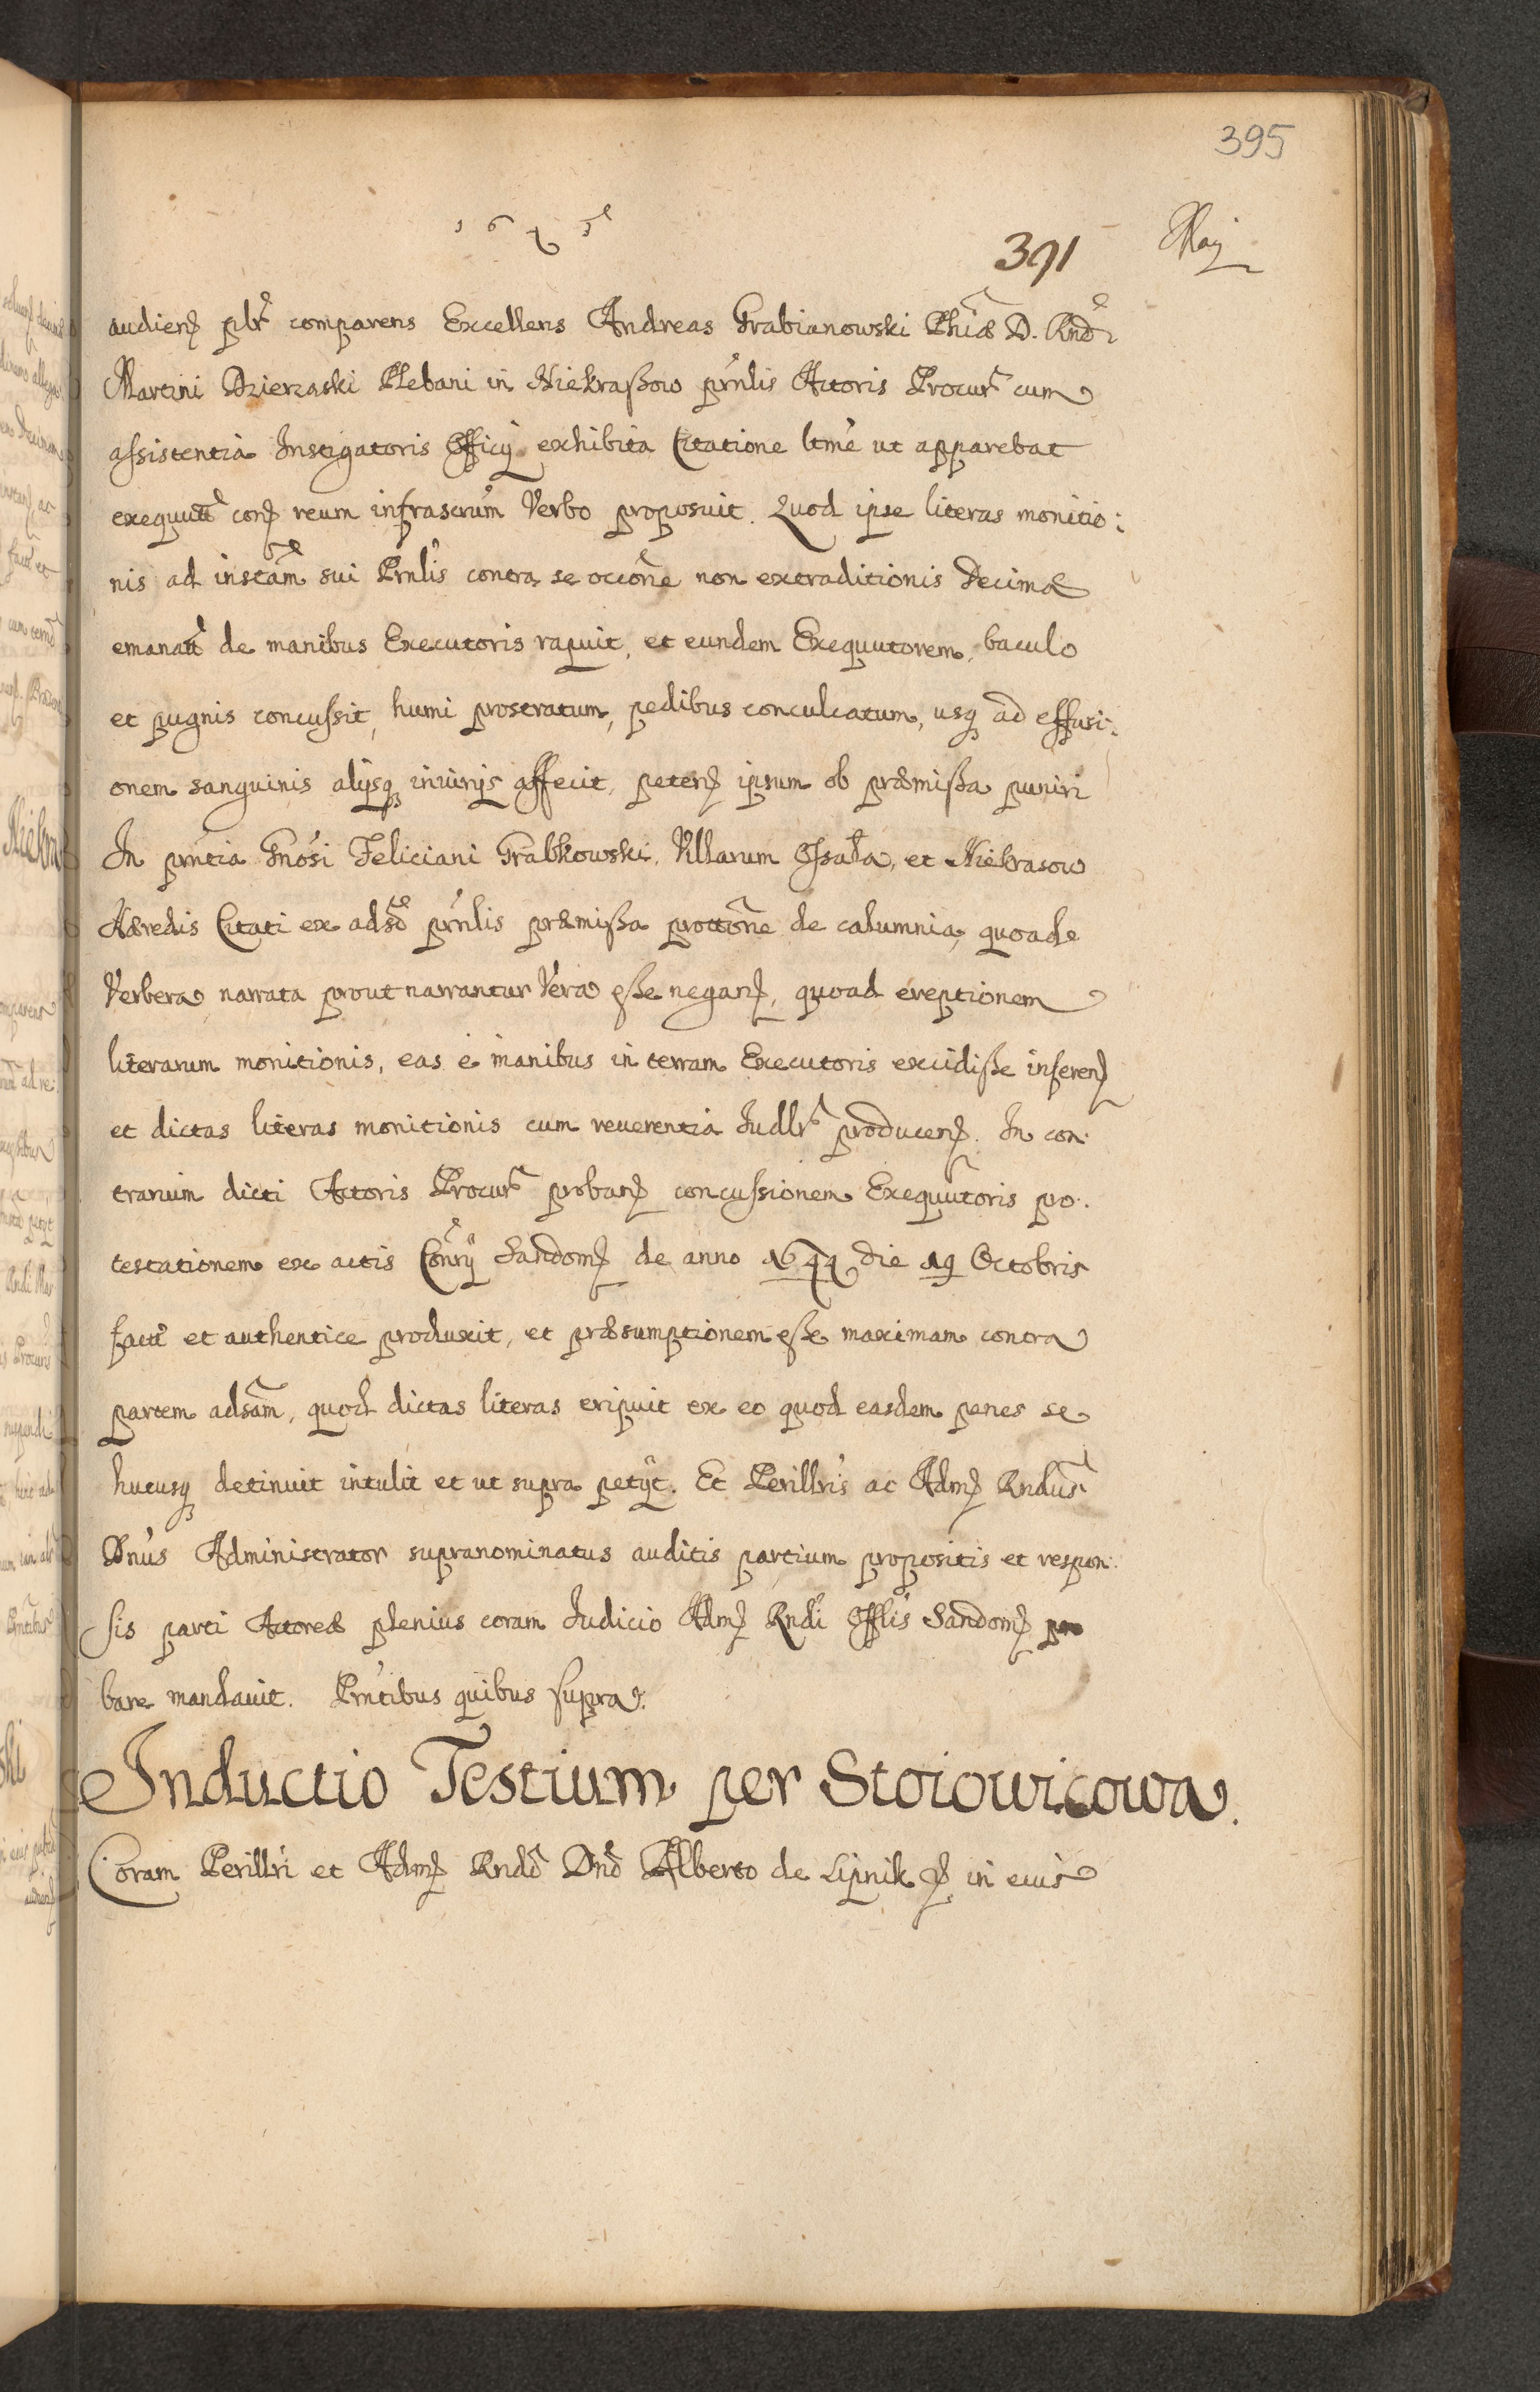 395
1645
391
Maij
audienȝ plr̃ comparens Excellens Andreas Grabianowski Phiæ D. Rndi
Martini Dzierzaski Plebani in Niekraßow prn̄lis Actoris Procur̃ cum
aſsistentia Instigatoris Officÿ exhibita Citatione ltme ut apparebat
exequut̃ conȝ reum infrascrum Verbo proposuit. Quod ipse literas monitio:
nis ad instam̃ sui Prnlis contra se occon̄e non extraditionis Decimæ
emanat̃ de manibus Executoris rapuit, et eundem Exequutorem, baculo
et pugnis concuſsit, humi prostratum, pedibus conculcatum, usqȝ ad effusi:
onem sanguinis alÿsqȝ iniurÿs affecit, petenȝ ipsum ob præmißa puniri
In prn̄tia Gnosi Feliciani Grabkowski, Villarum Oſsała, et Niekrasow
Hæredis Citati ex adsõ prn̄lis præmißa protton̄e de calumnia, quoad
Verbera narrata prout narrantur Vera eße neganȝ, quoad ereptionem
literarum monitionis, eas è manibus in terram Executoris excidiße inferenȝ
et dictas literas monitionis cum reuerentia Iudlr̃ producenȝ. In con:
trarium dicti Actoris Procur̃ probanȝ concuſsionem Exequutoris pro:
testationem ex actis Conrÿ Sandomȝ de anno 1644 die 19 Octobris
fact̃ et authentice produxit, et præsumptionem eße maximam contra
partem adsam̃, quod dictas literas eripuit ex eo quod easdem penes se
hucusqȝ detinuit intulit et ut supra petÿt. Et Perillris ac Admȝ Rndus
Dnus Administrator supranominatus auditis partium propositis et respon:
ſis parti Actoreæ plenius coram Iudicio Admȝ Rndi Offlis Sandomȝ pro
bare mandauit. Prn̄tibus quibus ſupra.
Inductio Testium per Stoiowicowa.
Coram Perillri et Admȝ Rndo Dno Alberto de Lipnik ꝑ in eius